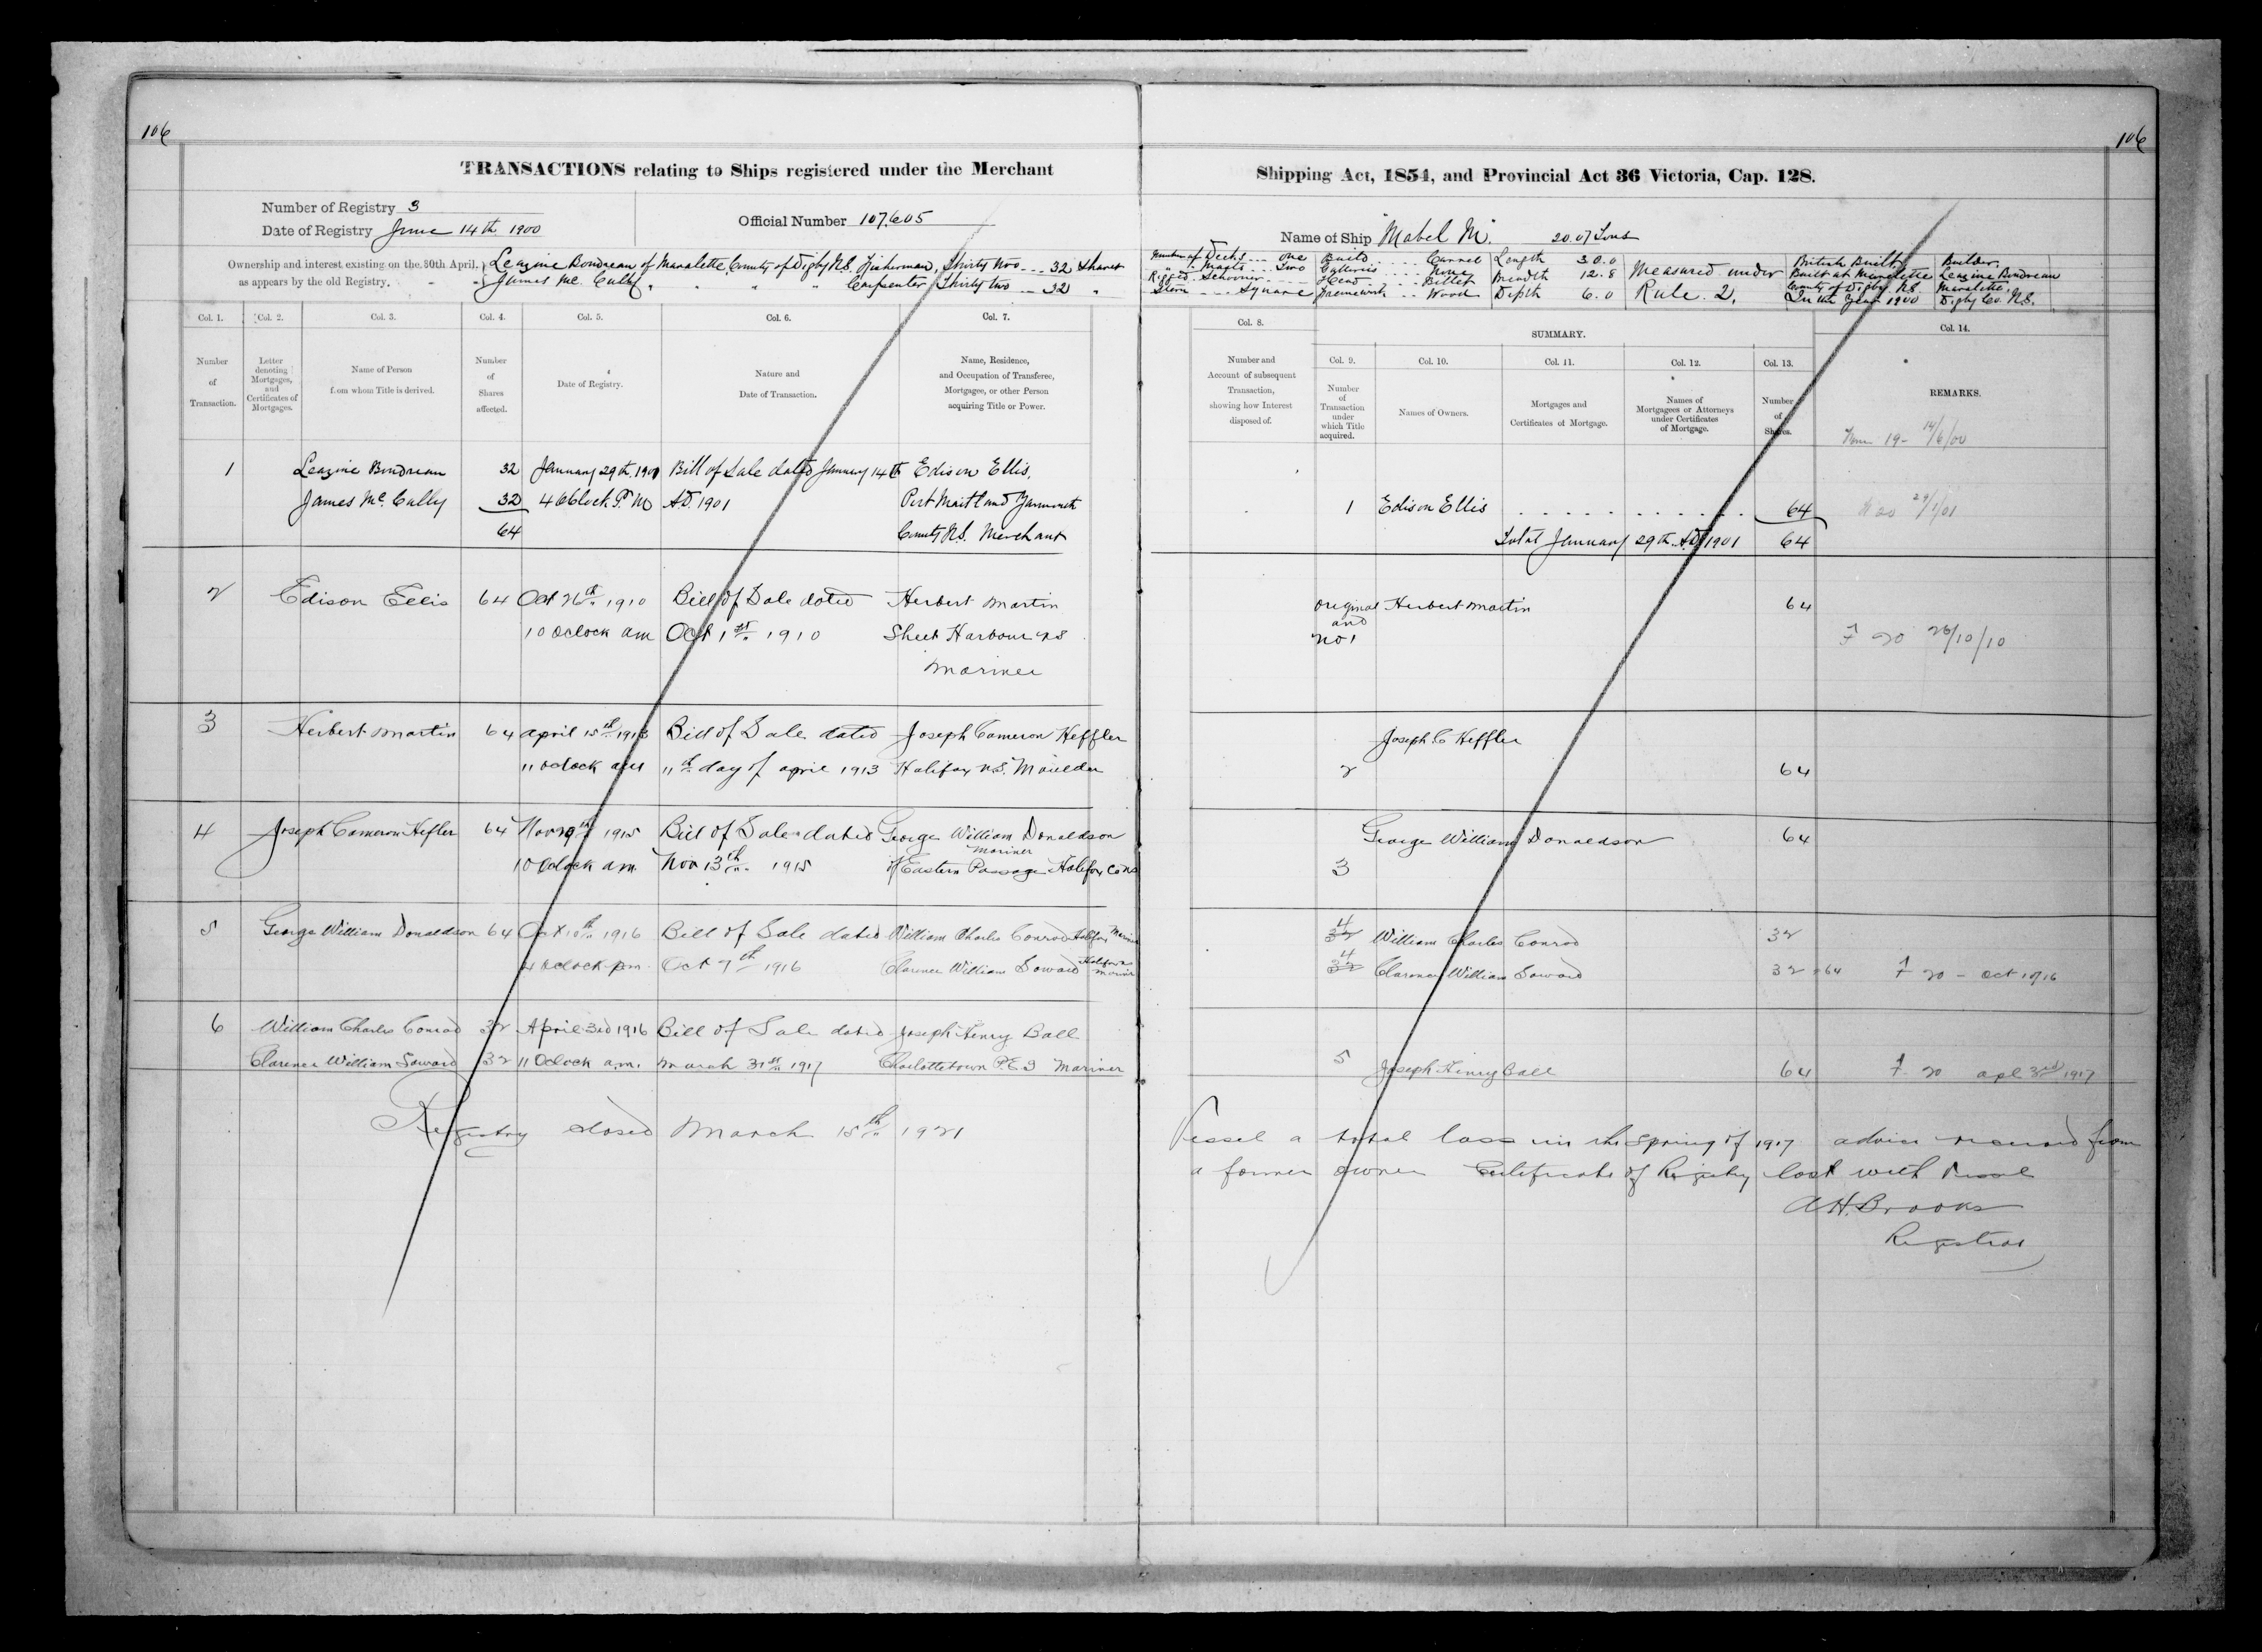 106
106
TRANSACTIONS relating to Ships registered under the Merchant Shipping Act, 1854, and Provincial Act 36 Victoria, Cap. 128.
Number of Registry 3
Date of Registry June 14th 1900
Official Number 107.605
Name of Ship "Mabel M." 20.07 Tons
Ownership and interest existing on the 30th April,
as appears by the old Registry.
Leazine Boudreau of Mavalette County of Digby N.S. Fisherman, Thirty two --- 32 Shares
James Mc Cully " " " " Carpenter, Thirty two --- 32 "
Number of Decks --- One Build Carvel Length 30.0
" Masts --- Two Galleries None Breadth 12.8
Rigged Schooner Head Billet Depth 6.0
Stern Square Framework Wood
Measured under
Rule 2.
British Built
Built at Mavalette
County of Digby N.S.
In the Year 1900
Builder
Leazine Boudreau
Mavalette,
Digby Co. N.S.
Col. 1. Col. 2. Col. 3. Col. 4. Col. 5. Col. 6. Col. 7.
Number of Transaction.
Letter denoting Mortgages, and Certificates of Mortgages.
Name of Person from whom Title is derived.
Number of Shares affected.
Date of Registry.
Nature and Date of Transaction.
Name, Residence, and Occupation of Transferee, Mortgagee, or other Person acquiring Title or Power.
Col. 8.
Number and Account of subsequent Transaction, showing how Interest disposed of.
SUMMARY.
Col. 9. Col. 10. Col. 11. Col. 12. Col. 13.
Number of Transaction under which Title acquired.
Names of Owners.
Mortgages and Certificates of Mortgage.
Names of Mortgagees or Attorneys under Certificates of Mortgage.
Number of Shares.
Col. 14.
REMARKS.
19- 14/6/00
1 Leazine Boudreau 32 January 29th 1901 Bill of Sale dated January 14th Edison Ellis,
James Mc Cully 32 4 OClock P.M A.D. 1901 Port Maitland Yarmouth
64 County N.S. Merchant
1 Edison Ellis 64
Total January 29th A.D. 1901 64
29/1/01
2 Edison Ellis 64 Oct 26th 1910 Bill of Sale dated Herbert Martin
10 Oclock am Oct 1st 1910 Sheet Harbour NS
Mariner
original and no 1 Herbert Martin 64
20 26/10/10
3 Herbert Martin 64 April 15th 1913 Bill of Sale dated Joseph Cameron Heffler
11 oclock am 11th day of april 1913 Halifax N.S. Moulder
2 Joseph C Heffler 64
4 Joseph Cameron Hefler 64 Nov 1915 Bill of Sale dated George William Donaldson
10 Oclock am Nov 13th 1915 of Eastern Passage Halifax Co NS
Mariner
3 George William Donaldson 64
5 George William Donaldson 64 Oct 10th 1916 Bill of Sale dated William Charles Conrod Halifax Mariner
4 Oclock pm Oct 7th 1916 Clarence William Soward Halifax Mariner
4 32 William Charles Conrod 32
4 32 Clarence William Soward 32 = 64 20 - Oct 10/16
6 William Charles Conrod 32 April 3rd 1916 Bill of Sale dated Joseph Henry Ball
Clarence William Soward 32 11 Oclock a.m. March 31st 1917 Charlottetown P.E.I Mariner
5 Joseph Henry Ball 64 20 apl 3rd 1917
Registry closed March 15th 1921
Vessel a total loss in the Spring of 1917 advice received from
a former owner Certificate of Registry lost with Vessel
A.H. Brooks
Registrar